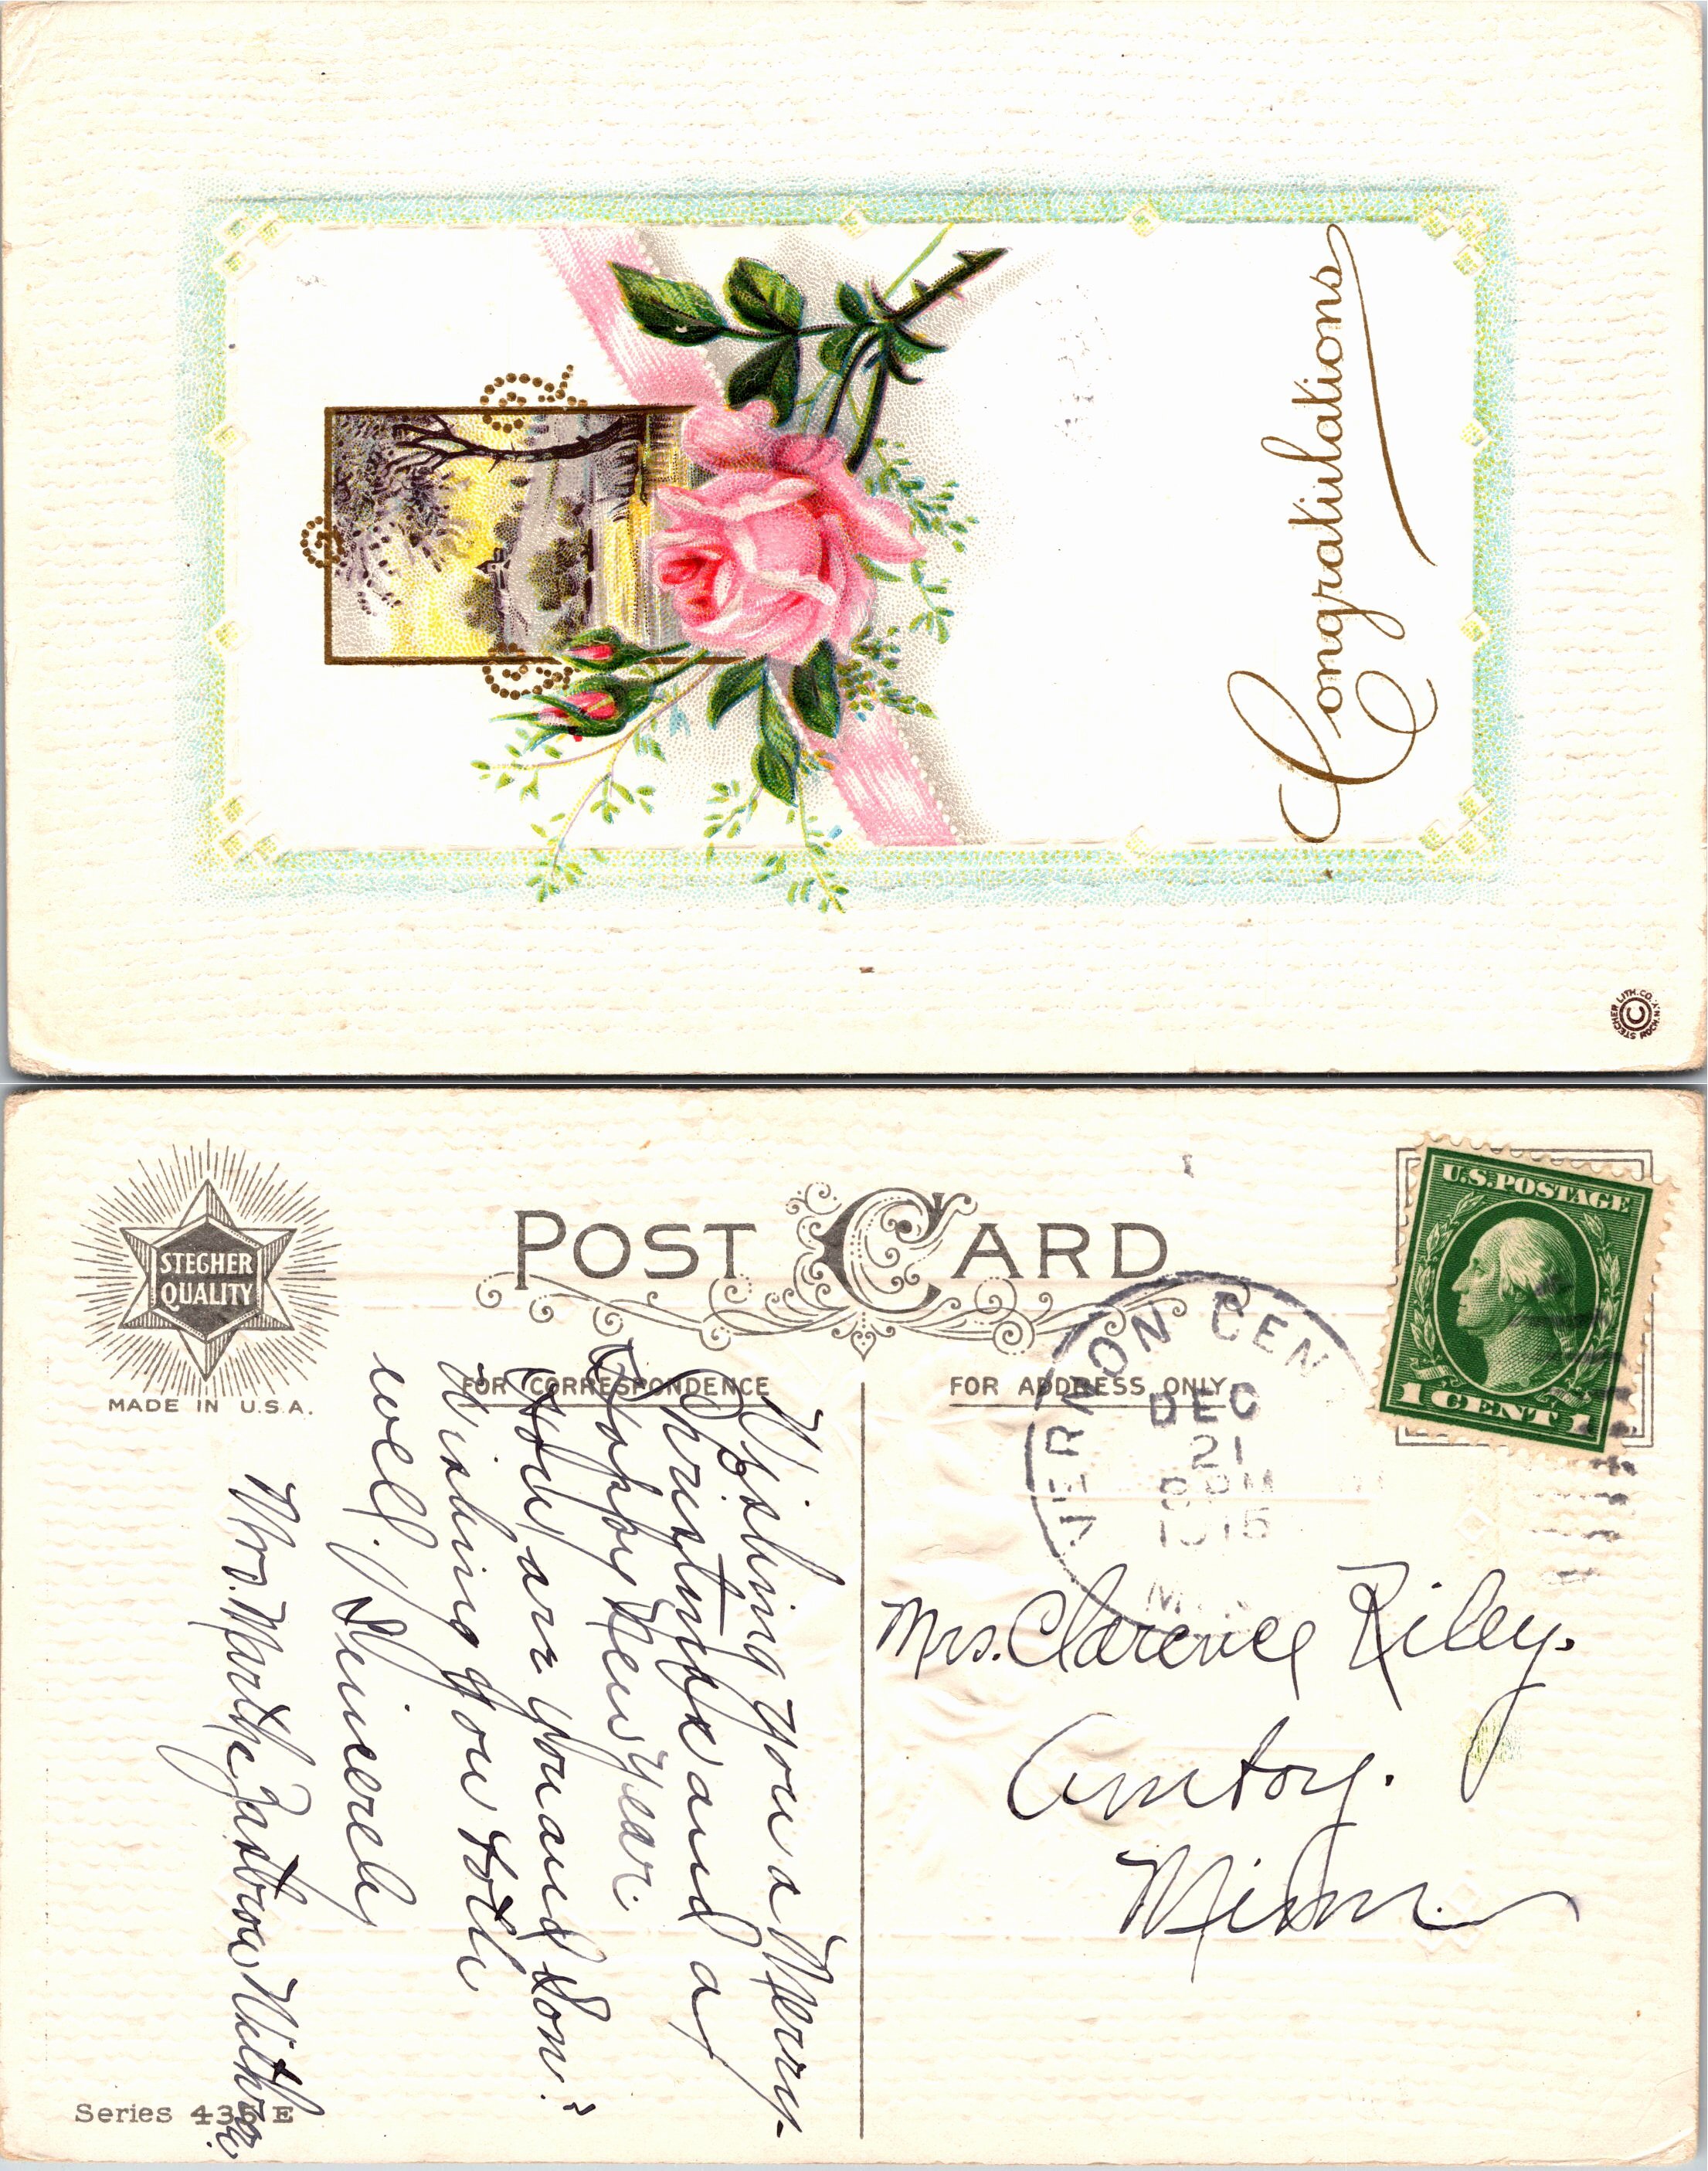 Congratulations
STECHER LITH. CO. ROCH. N.Y.
C
STECHER
QUALITY
MADE IN U.S.A.
POST CARD
FOR CORRESPONDENCE
FOR ADDRESS ONLY
U.S. POSTAGE
1 CENT 1
VERNON CEN
DEC
21
PM
MIN
Wishing you a Merry
Christmas and a
Happy New Year.
How are you and son?
Wishing you both
well. Sincerely
Mrs. Martha
Mrs. Clarence Riley.
Amboy.
Minn.
Series 435 E